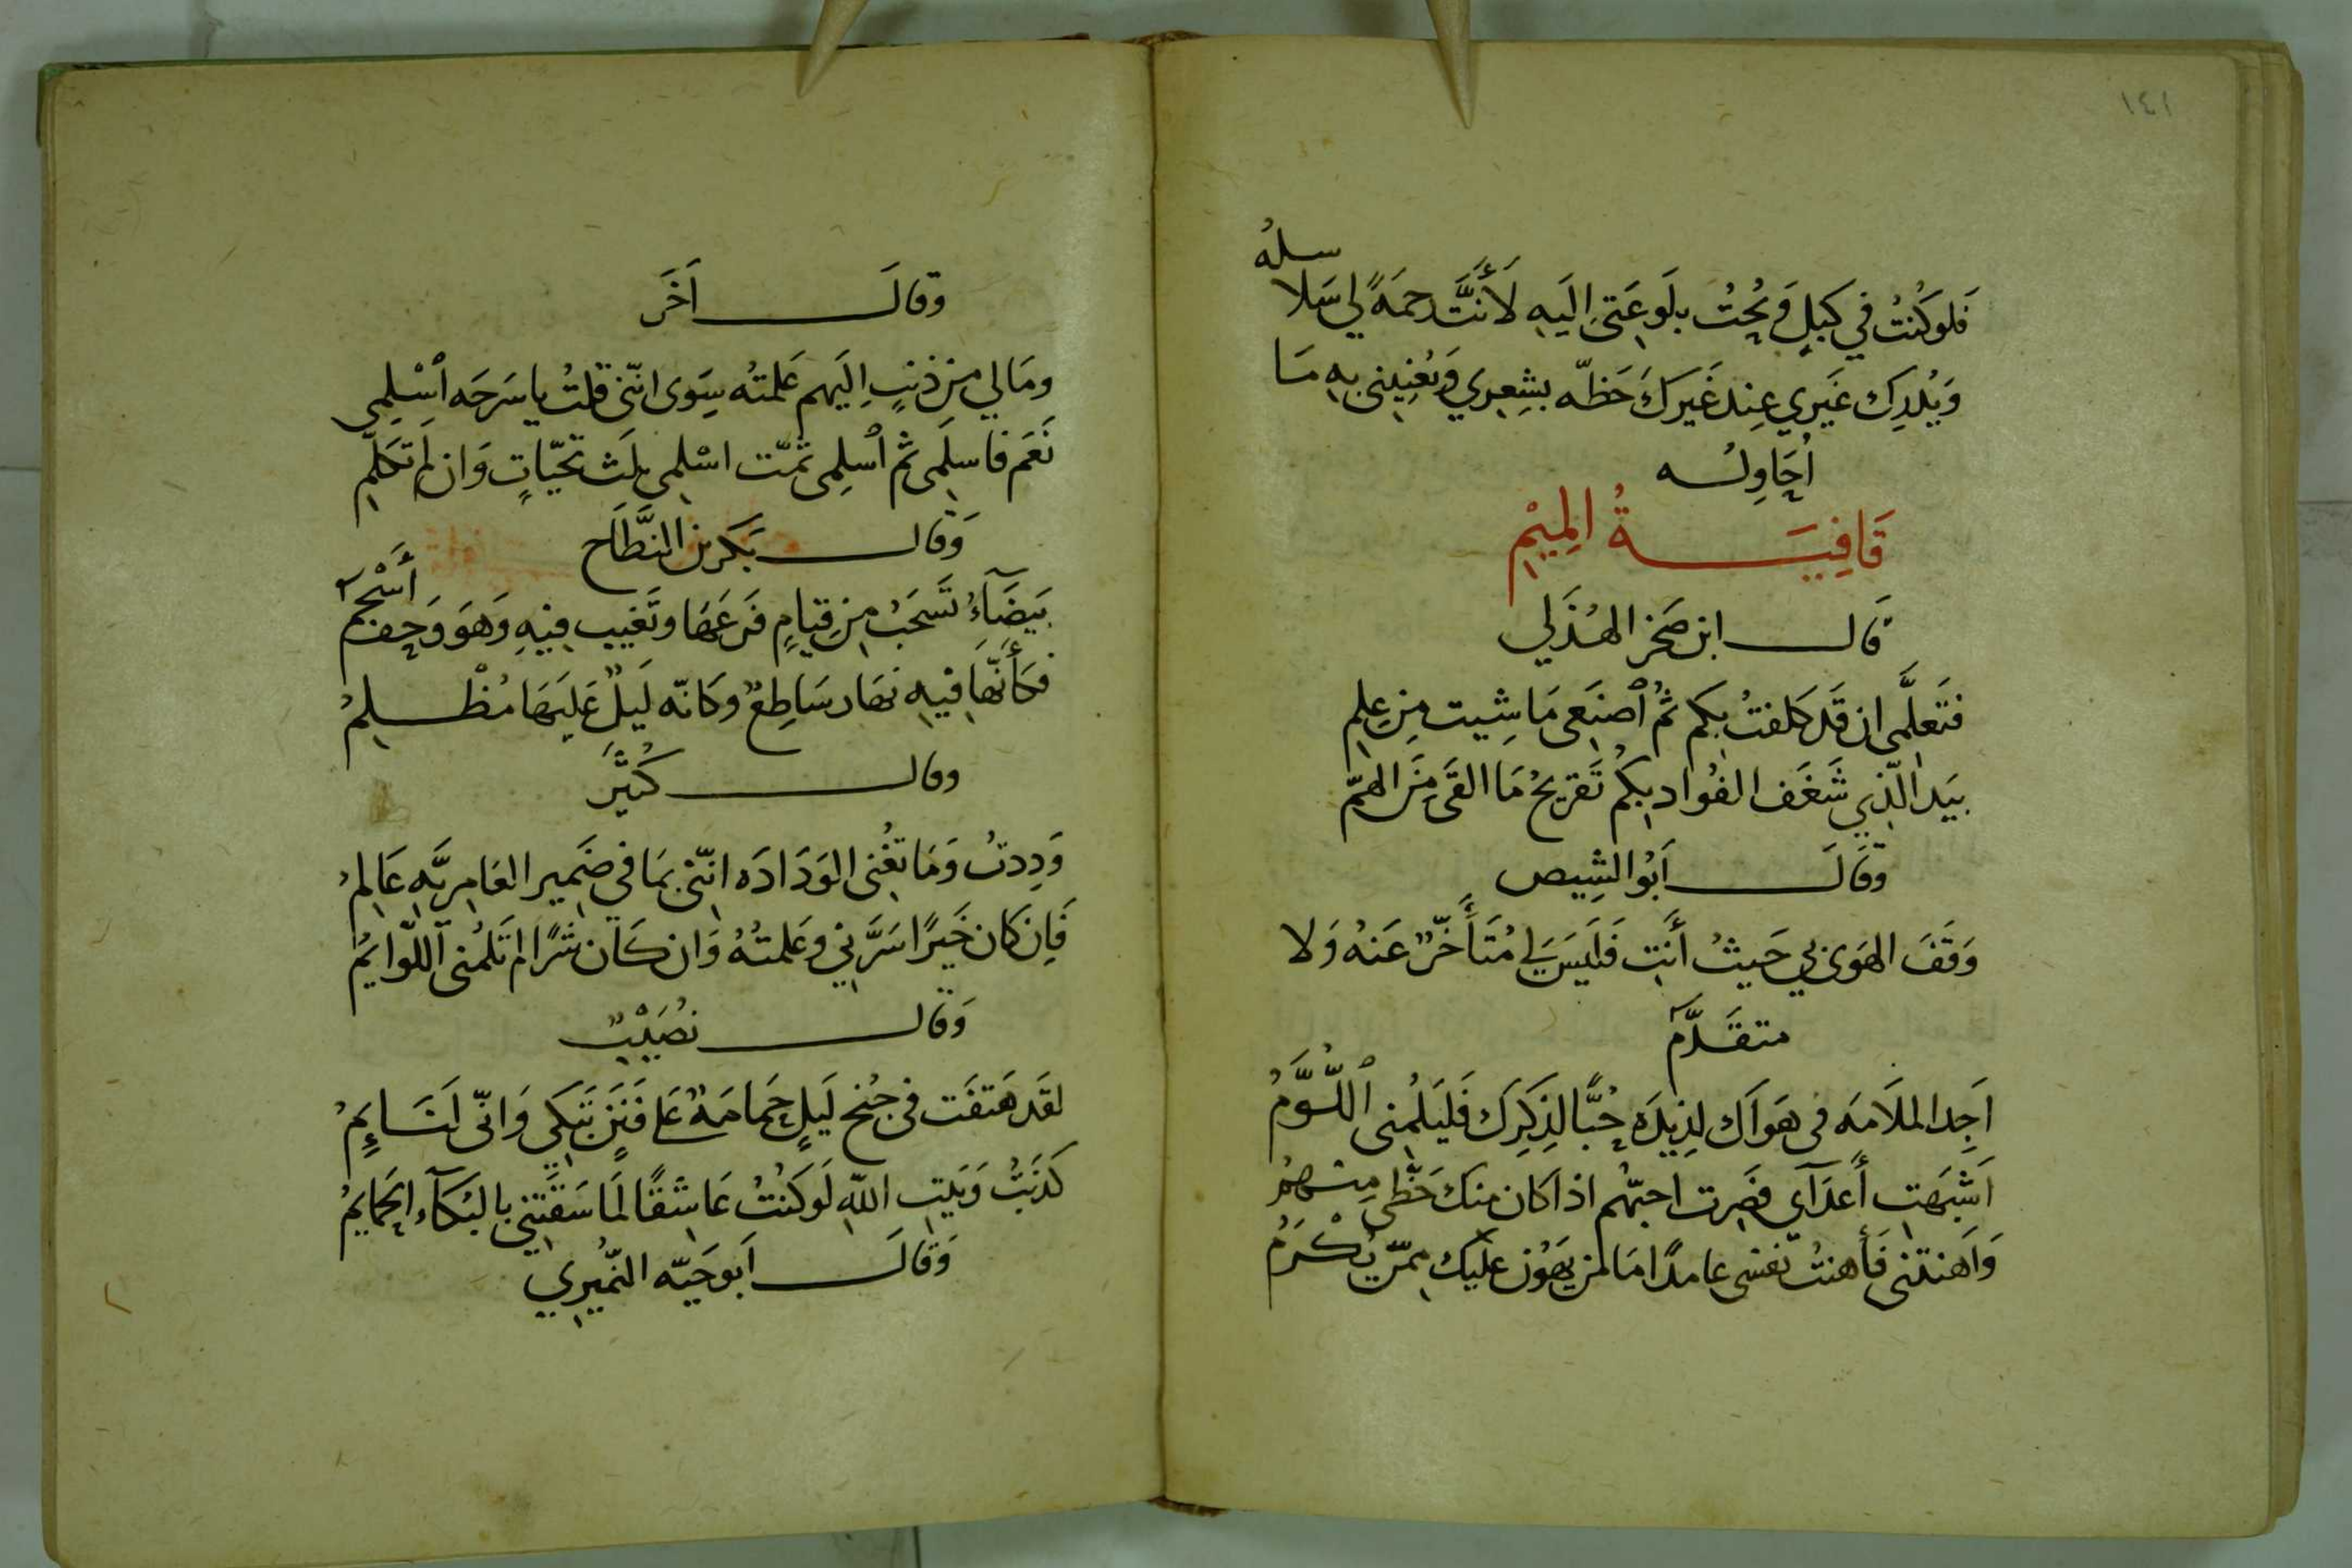 ١٤١
فَلَو كُنتُ في كَبلٍ وَبُحْتُ بلَوعَتي اِليَهِ لَأَنَّت رحمَةً لي سَلا
سلهُ
وَيُدرِك غَيري عِندَ غَيركَ حَظّه بشِعري وَيُعْنِيني به مَا
اُحَاوِلُه
قَافِيَةُ المِيْمِ
قال ابن صَخر الهُذَلي
فتَعلَّمي ان قَد كَلفتُ بكم ثُمَّ ٱصنَعي مَا شِيت مِن عِلمِ
بيَد الّذي شَغَف الفُواد بكُم تَقريحُ مَا القَى مِنَ الهمّ
وقَالَ اَبُو الشِيص
وَقَفَ الهَوى بي حَيثُ أَنتِ فَلَيسَ لي مُتَأَخّرٌ عَنهُ وَلا
متقَدَّمُ
اَجِد الملَامَه في هَوَاك لذِيذَه حُبًّا لذِكرِك فَليَلُمني ٱللُّوَّمُ
اَشْبَهتِ أَعدَآي فصِرت احبّهُم اذ اكان منك حَظّى مِنهُمُ
وَاَهنتني فَأَهنتُ نفسي عامدًا مَا من يهَون عليك ممّن يُكْرَمُ
وقالَ اَخَر
ومَا لي مِن ذنبٍ اِليَهم عَلمتُه سِوَى انّني قلتُ يا سَرحَه ٱسْلِمي
نَعَم فاسلَمي ثم ٱسلِمي ثمّت اسْلِمي ثلَث تحيّاتٍ وَان لم تكَلّمِ
وَقال بَكر بن النَّطَّاح
بَيضَآءُ تَسحَبُ مِن قيَامٍ فَرعَهَا وتَغيب فيهِ وَهوَ وَحف
أَسْحَمُ
فكَأَنّهَا فيهِ نهَار سَاطِعٌ وكَانّه لَيلٌ عَليَهَا مُظْلِمُ
وقال كُثَيِّر
وَدِدتُ وَمَا تغُني الوَدَادَه انّني بمَا في ضَمير العَامِريَّه عَالِمُ
فَاِن كان خَيرًا سَرَّني وعَلمتُهُ وَان كَان شرًا لم تَلُمني ٱللّوايمُ
وَقَال نُصَيْبٌ
لقَد هَتفَت في جُنح لَيلٍ حَمامَةٌ عَلى فنَنٍ تَبكي وَانّي لَنَايِمُ
كَذبتُ وَبَيتِ اللّهِ لَو كنتُ عَاشقًا لَمَا سَبقَتني بالبُكآء الحَمايمُ
وَقالَ اَبو حَيّه النّمُيري